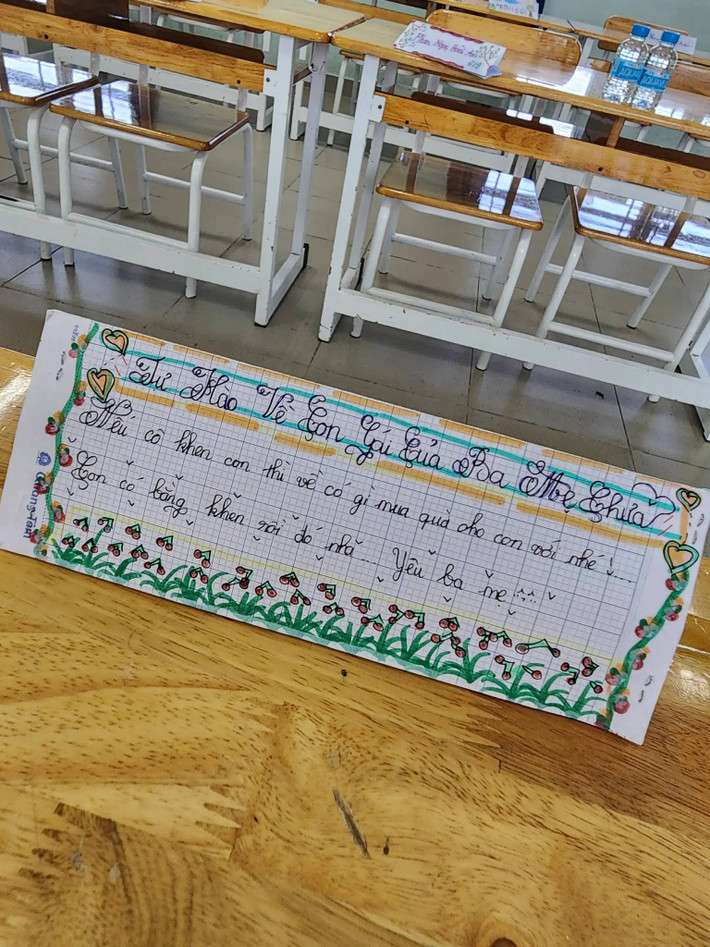 AQUAVI
Tự Hào Về Con Gái Của Ba Mẹ Chưa
Nếu cô khen con thì về có gì mua quà cho con với nhé!...
Con có bằng khen rồi đó nha... Yêu ba mẹ